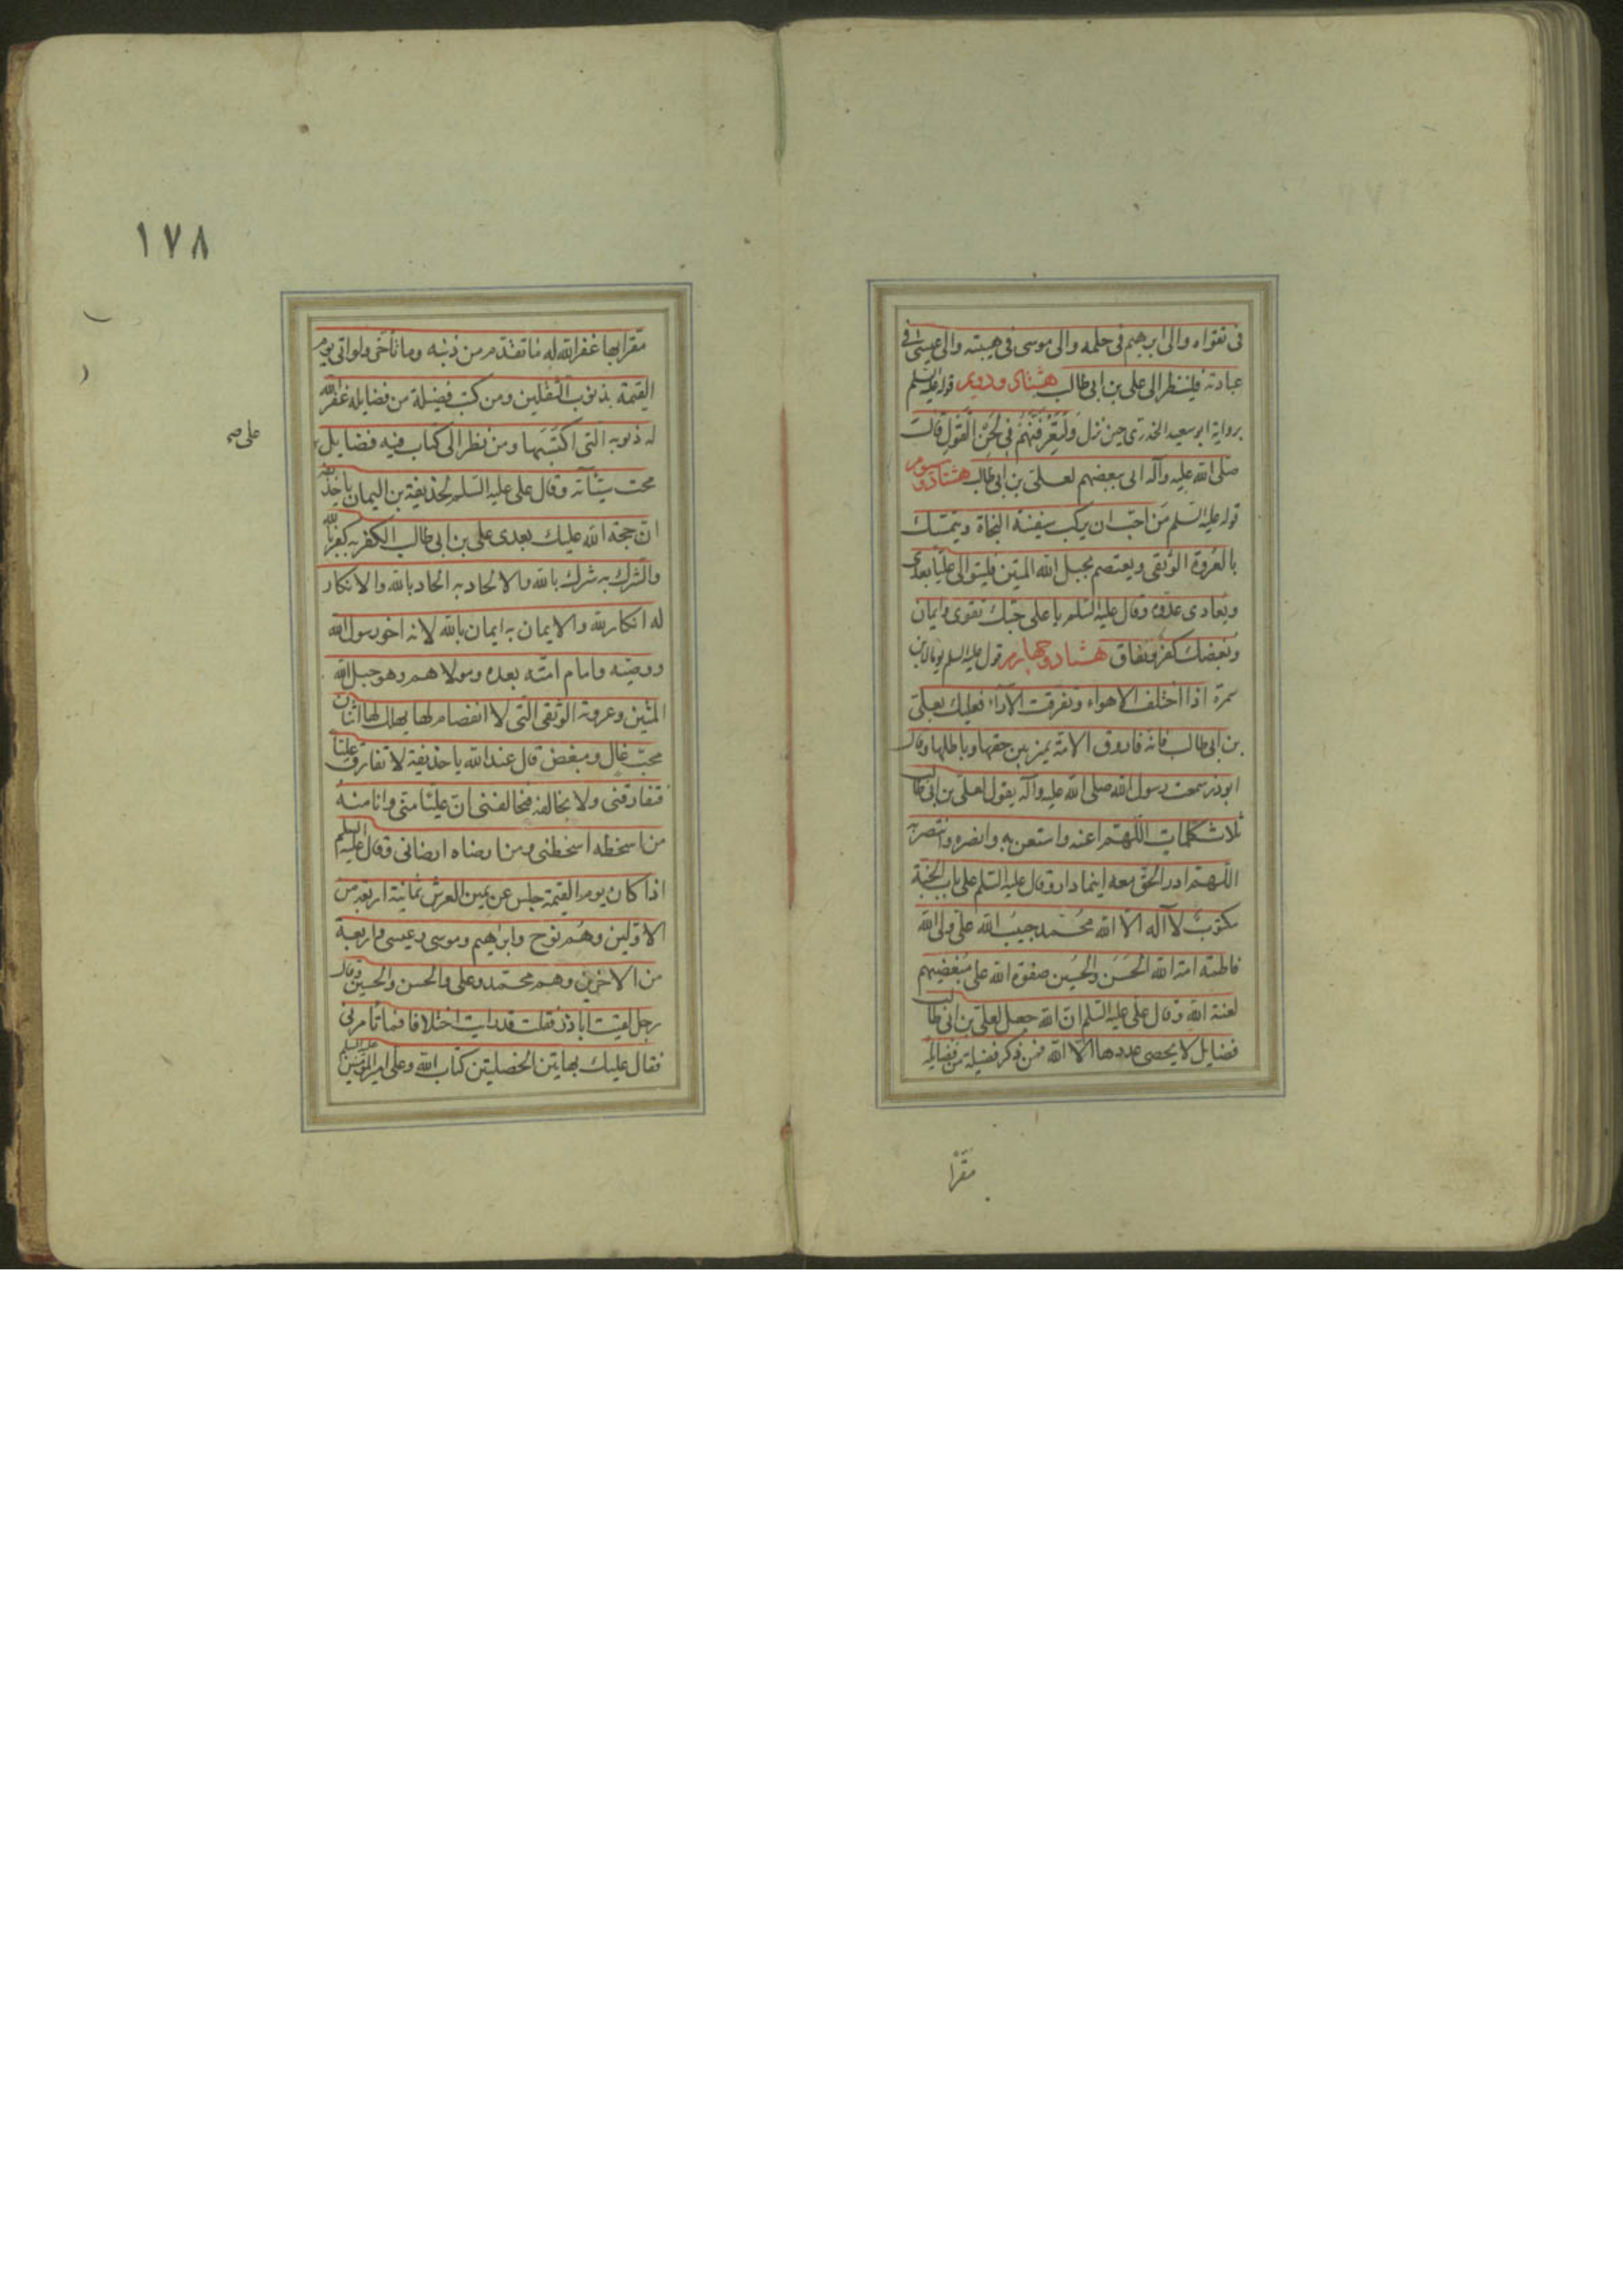 فى تقواه والى ابرهيم فى حلمه والى موسى فى هيبته والى عيسى فى
عبادته فلينظر الى على بن ابى طالب هشتاد ودويم قوله عليه السلم
برواية ابو سعيد الخدرى حين نزل وَلَتَعْرِفَنَّهُمْ فِى لَحْنِ الْقَوْلِ قال
صلى الله عليه وآله اى ببغضهم لعلى بن ابى طالب هشتاد وسوم
قوله عليه السلم من احب ان يركب سفينة النجاة ويتمسك
بالعروة الوثقى ويعتصم بحبل الله المتين فليتوالى عليّاً بعدى
ويعادى عدوه وقال عليه السلم يا على حبك تقوى وايمان
وبغضك كفر ونفاق هشتاد وچهارم قول عليه السلم
سمرة اذا اختلف الاهواء وتفرقت الآراء فعليك بعلى
بن ابى طالب فانه فاروق الامة يميز بين حقها وباطلها وقال
ابوذر سمعت رسول الله صلى الله عليه وآله يقول لعلى بن ابى طالب
ثلاث كلمات اللّهم اعنه واستعن به وانصره وانتصر به
اللّهم ادر الحق معه اينما دار وقال عليه السلم على باب الجنة
مكتوبٌ لا آله الّا الله محمد حبيب الله على ولى الله
فاطمه امة الله الحَسَن والحُسين صفوة الله على مُبغضيهم
لعنة الله وقال على عليه السلم ان الله جعل لعلى بن ابى طالب
فضايل لا يحصى عددها الّا الله فمن ذكر فضيلة من فضايله
مقرّا
١٧٨
مقرا بها غفر الله له ما تقدم من ذنبه وما تأخر ولو اتى يوم
القيمة بذنوب الثقلين ومن كتب فضيلة من فضايله غفر الله
له ذنوبه التى اكتسبها ومن نظر الى كتاب فيه فضايل
على صح
محت سيئآته وقال على عليه السلم لحذيفة بن اليمان يا حذيفه
ان حجة الله عليك بعدى على بن ابى طالب الكفر به كفر بالله
والشرك به شرك بالله والالحاد به الحاد بالله والانكار
له انكار لله والايمان به ايمان بالله لانه اخو رسول الله
ووصيّه وامام امّته بعده ومولاهم وهو حبل الله
المتين وعروته الوثقى التى لا انفصام لها يهلك لها اثنان
محبّ غال ومبغض قال عند الله يا حذيفة لا تفارق عليّاً
فتفارقنى ولا يخالفه فتخالفنى ان عليّا منى وانا منه
من اسخطه اسخطنى ومن ارضاه ارضانى وقال عليه السلم
اذا كان يوم القيمة جلس عن يمين العرش ثمانية اربعة من
الاولين وهم نوح وابراهيم وموسى وعيسى واربعة
من الاخرين وهم محمّد وعلى والحسن والحسين وقال
رجل لقيت اباذر فقلت قد رايت اختلافا فما تأمرنى
فقال عليك بهاتين الخصلتين كتاب الله وعلى امير المؤمنين عليه السلم